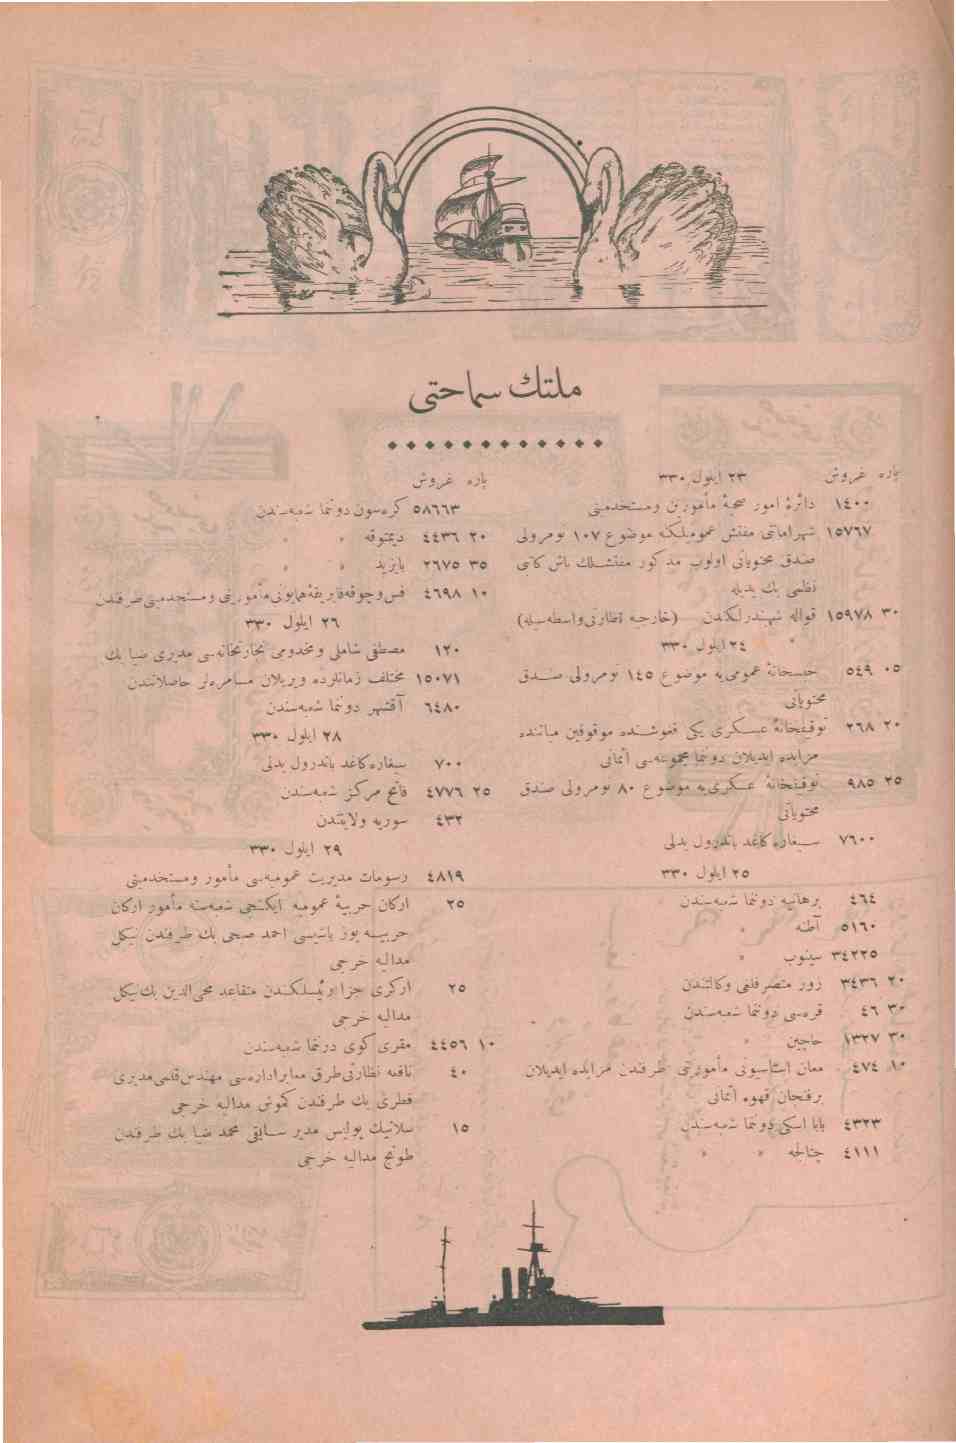 ملتك سماحتى
پاره غروش ٢٣ ايلول ٣٣٠
١٤٠٠ دائرۀ امور صحيۀ مأمورين ومستخدمينى
١٥٧٦٧ شهرامانتى مفتش عموميلكنه موضوع ١٠٧ نومرولى
صندق محتوياتى اولوب مذكور مفتشلك باش كاتبى
نظمى بك يديله
٣٠ ١٥٩٧٨ قواله شهبندرلكندن (خارجيه نظارتى واسطه سيله)
٢٤ ايلول ٣٣٠
٠٥ ٥٤٩ حبسخانۀ عمومى يه موضوع ١٤٥ نومرولى صندق
محتوياتى
٢٠ ٢٦٨ توقيفخانۀ عسكرى يكى قغوشنده موقوفين مياننده
مزايده ايديلان دونما مجموعه سى اثمانى
٢٥ ٩٨٥ توقيفخانۀ عسكرى يه موضوع ٨٠ نومرولى صندق
محتوياتى
٧٦٠٠ سيغاره كاغد باندرول بدلى
٢٥ ايلول ٣٣٠
٤٦٤ برهانيه دونما شعبه سندن
٥١٦٠ آطنه »
٣٤٢٢٥ سينوب »
٢٠ ٣٤٣٦ زور متصرفلغى وكالتندن
٣٠ ٤٦ قره سى دونما شعبه سندن
٣٠ ١٣٢٧ حاجين » »
١٠ ٤٧٤ معان استاسيونى مأموريتى طرفندن مزايده ايديلان
برفنجان قهوه اثمانى
٤٣٢٣ بابا اسكى دونما شعبه سندن
٤١١١ چتالجه » »
پاره غروش
٥٨٦٦٣ كره سون دونما شعبه سندن
٢٠ ٤٤٣٦ ديمتوقه » »
٣٥ ٢٦٧٥ بايزيد » »
١٠ ٤٦٩٨ فس وچوقه فابريقۀ همايونى مأمورينى ومستخدمينى طرفندن
٢٦ ايلول ٣٣٠
١٢٠ مصطفى شاملى ومخدومى تجارتخانه سى مديرى ضيا بك
١٥٠٧١ مختلف زمانلرده ويريلان مسامره لر حاصلاتندن
٦٤٨٠ آقشهر دونما شعبه سندن
٢٨ ايلول ٣٣٠
٧٠٠ سيغاره كاغد باندرول بدلى
٢٥ ٤٧٧٦ فاتح مركز شعبه سندن
٤٣٢ سوريه ولايتندن
٢٩ ايلول ٣٣٠
٤٨١٩ رسومات مديريت عموميه سى مأمور ومستخدمينى
٢٥ اركان حربيۀ عموميه ايكنجى شعبه سنه مأمور اركان
حربيه يوز باشيسى احمد صبحى بك طرفندن نيكل
مداليه خرجى
٢٥ ارگرى جزا رئيسلكندن متقاعد محى الدين بك نيكل
مداليه خرجى
١٠ ٤٤٥٦ مقرى كوى دونما شعبه سندن
٤٠ نافعه نظارتى طرق معابر اداره سى مهندس قلمى مديرى
قطرى بك طرفندن كموش مداليه خرجى
١٥ سلانيك پوليس مدير سابقى محمد ضيا بك طرفندن
طونج مداليه خرجى